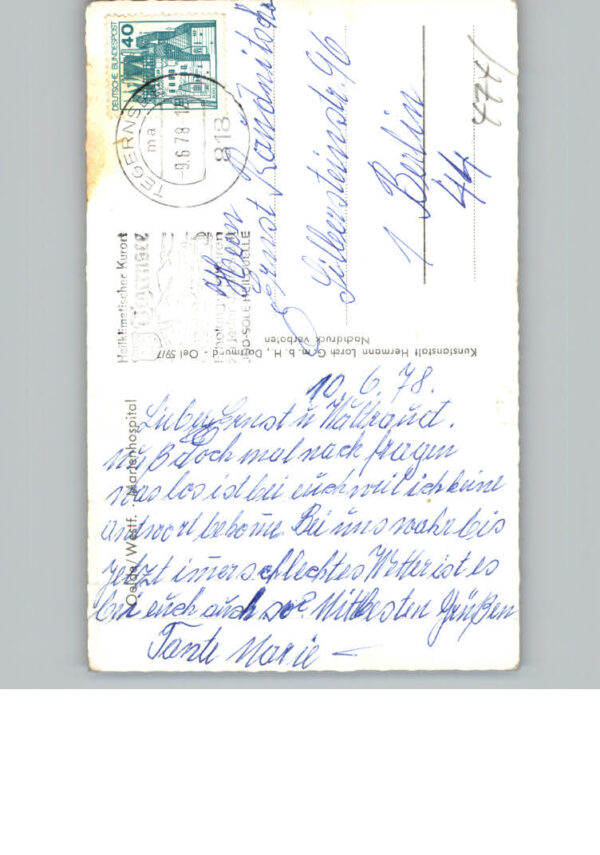 DEUTSCHE BUNDESPOST
40
TEGERNSEE
ma
-9.6.78-1
818
Heilklimatischer Kurort
Tegernsee
JOD-SOLE-HEILQUELLE
Herrn
Ernst
Silbersteinstr. 96
1 Berlin
44
Kunstanstalt Hermann Lorch G.m.b.H., Dortmund - Oel
Nachdruck verboten
Oelde/Westf. - Marienhospital
10.6.78.
Lieber Ernst u Waltraut.
muß doch mal nach fragen
was los ist bei euch weil ich keine
Antwort bekome. Bei uns wahr bis
jetzt imer schlechtes Wetter ist es
bei euch auch so? Mit besten Grüßen
Tante Marie